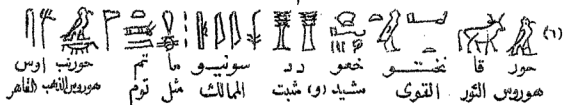 (٦)
حور قا نختـــو خعو دد سونيـــو ما تم حورنب اوس
هوروس الثور القوى مشيد (و) مثبت الممالك مثل توم هوروس الذهب القاهر